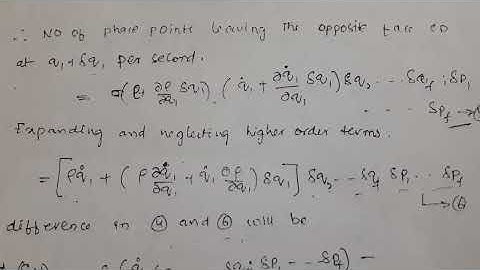 ∴ No of phase points leaving the opposite face CD
at q₁+δq₁ per second.
= (ρ + ∂ρ/∂q₁ δq₁) (q̇₁ + ∂q̇₁/∂q₁ δq₁) δq₂ --- δq_f ; δp₁
--- δp_f →
Expanding and neglecting higher order terms.
= [ρq̇₁ + (ρ ∂q̇₁/∂q₁ + q̇₁ ∂ρ/∂q₁) δq₁] δq₂ --- δq_f δp₁ .. δp_f
↳ ⑥
difference in ④ and ⑥ will be
δp₁ -- δp_f) =